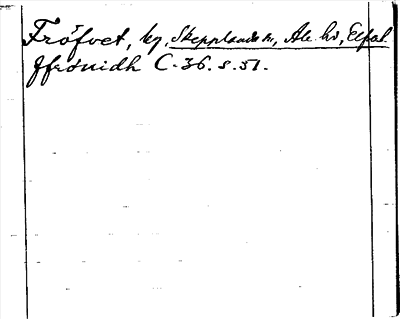 Fröfvet, by, Skepplanda sn, Ale hd, Elfsb.
ffrönidh C. 36. s. 51.